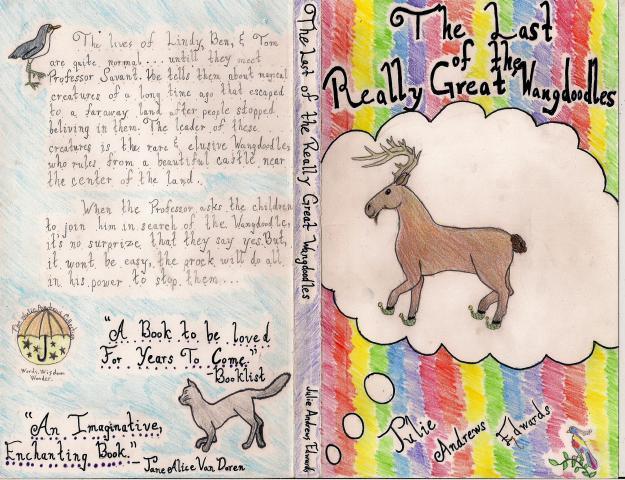 The lives of Lindy, Ben, & Tom
are quite normal.... untill they meet
Professor Savant. He tells them about magical
creatures of a long time ago that escaped
to a faraway land after people stopped
beliving in them. The leader of these
creatures is the rare & elusive Wangdoodle,
who rules from a beautiful castle near
the center of the land.
When the Professor asks the children
to join him in search of the Wangdoodle,
it's no surprize that they say yes. But,
it won't be easy, the prock will do all
in his power to stop them...
Words. Wisdom
Wonder.
"A Book to be loved
For Years To Come."
-Booklist
"An Imaginative,
Enchanting Book."
- Jane Alice Van Doren
The Last of the Really Great Wangdoodles
Julie Andrews Edwards
The Last
of the
Really Great Wangdoodles
Julie Andrews Edwards